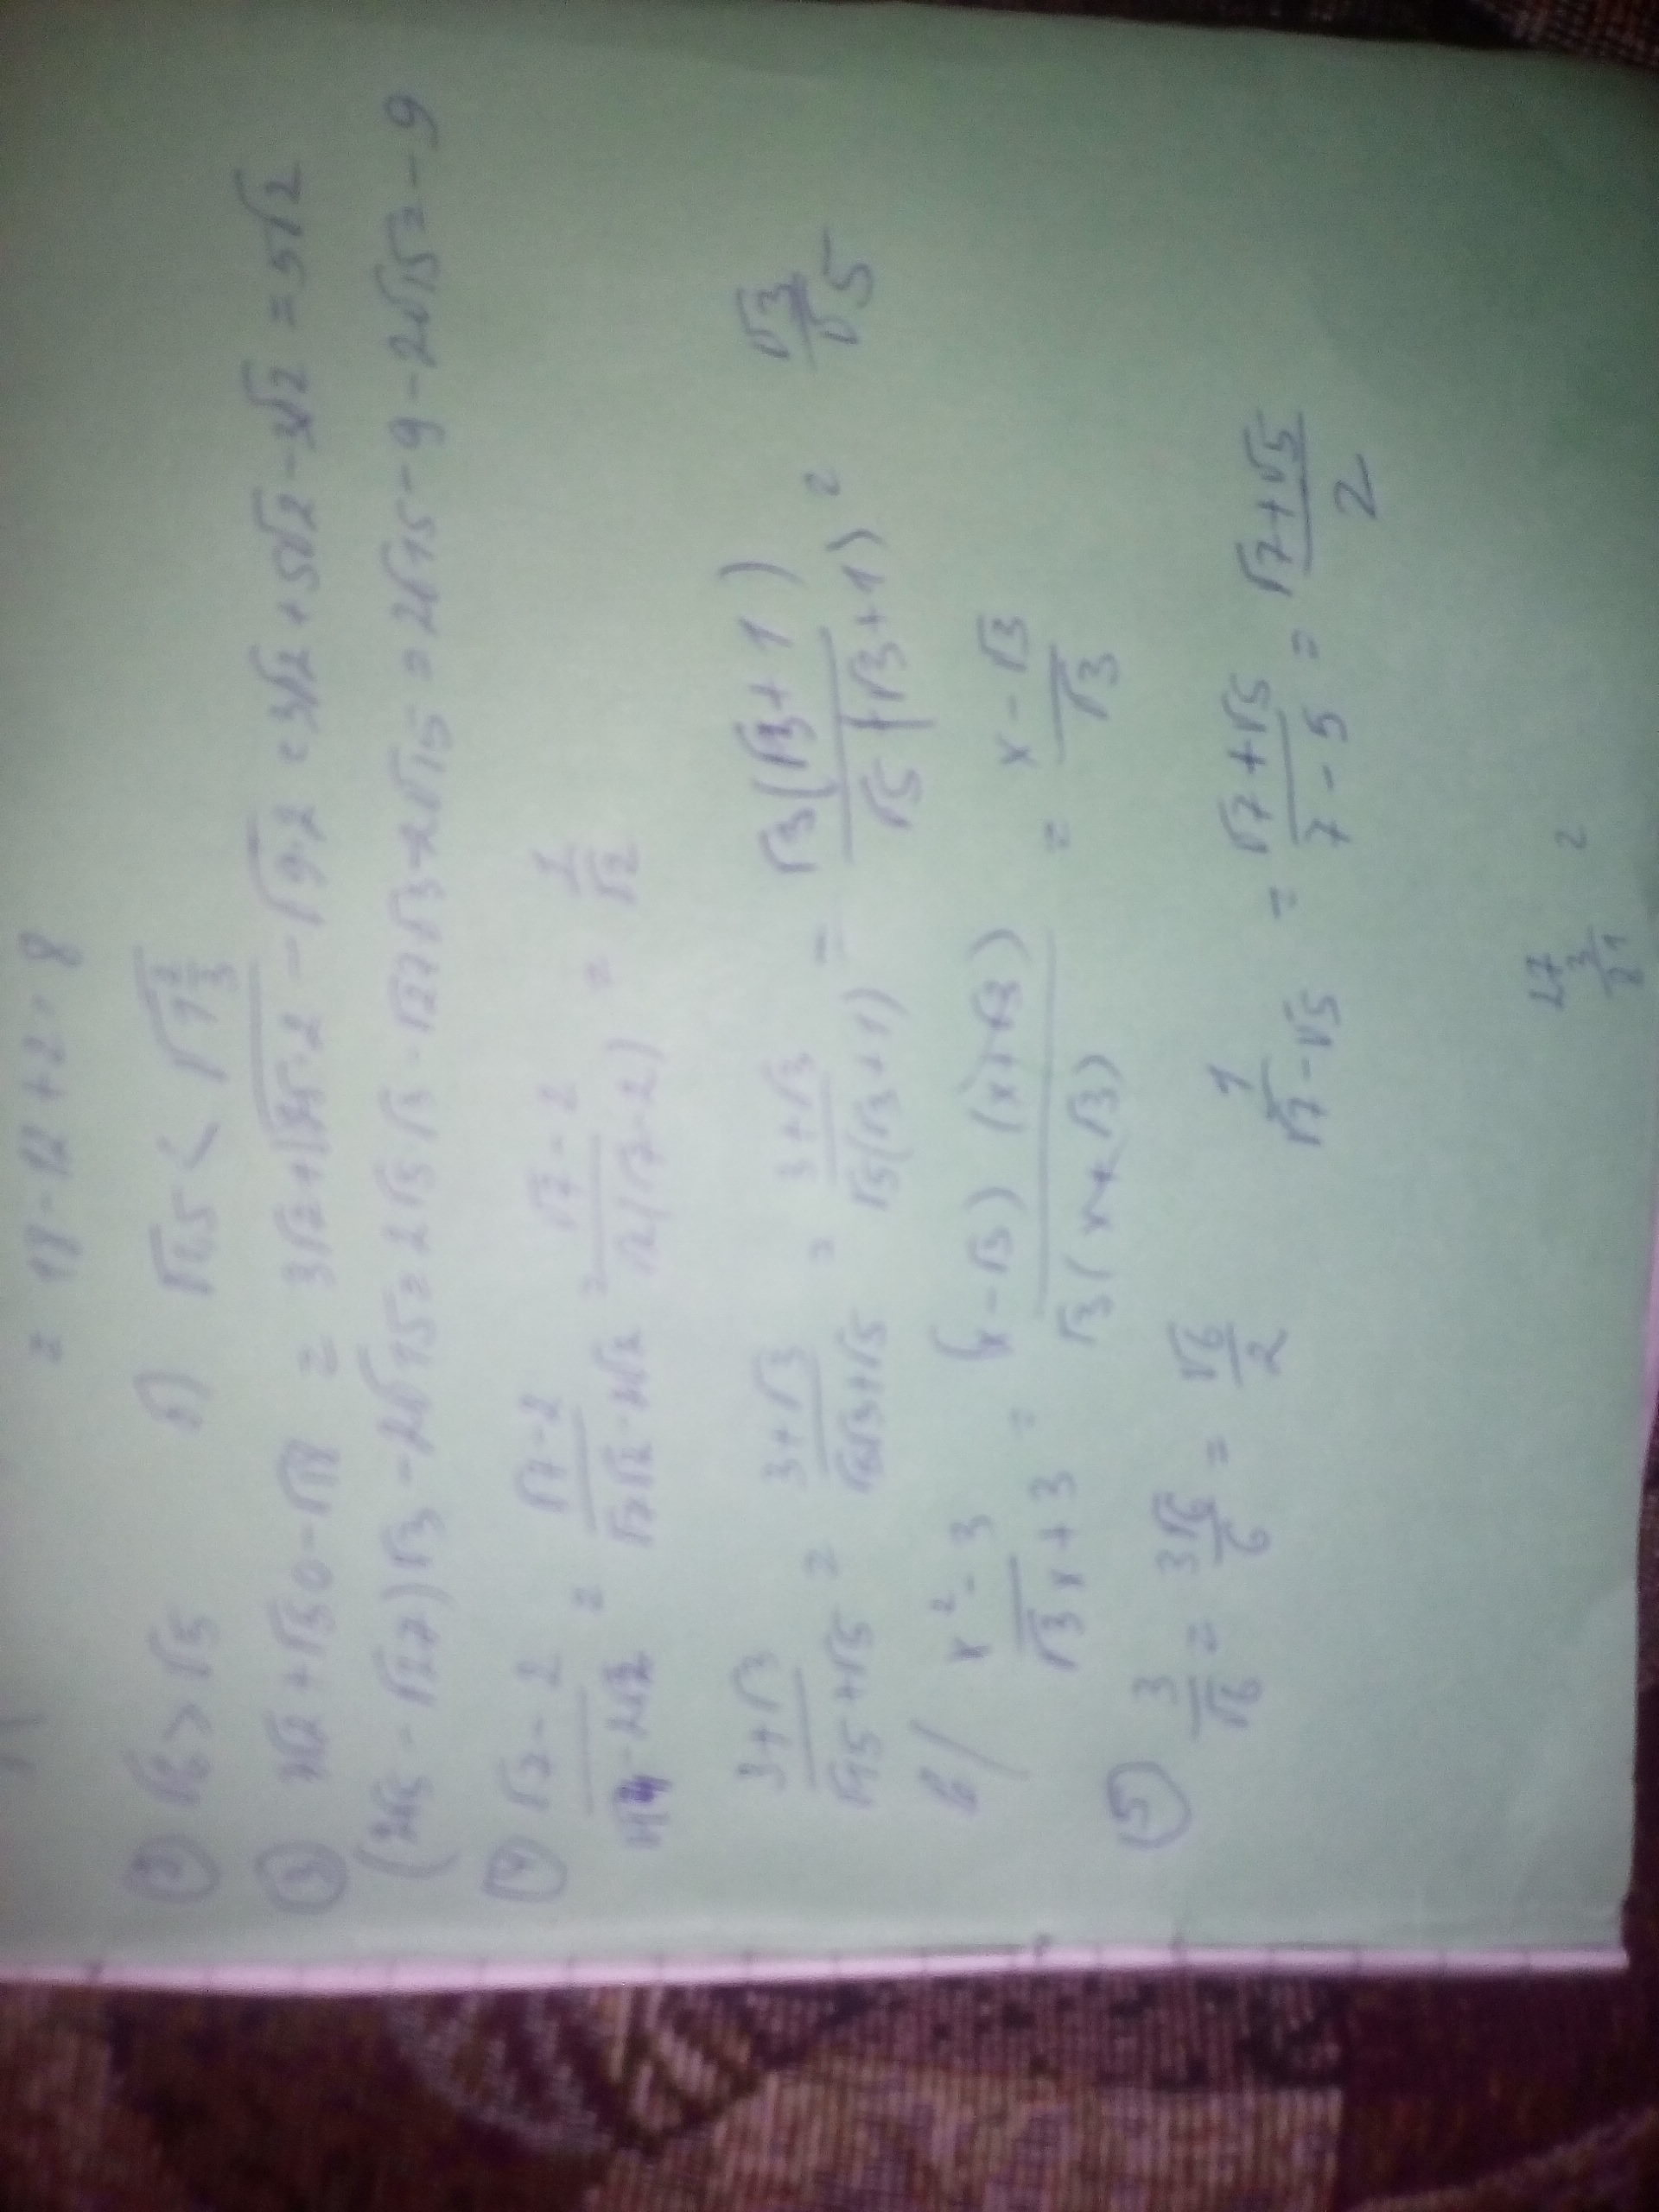 = 18 - 12 + 2 = 8
② √6 > √5 б) √1,5 < √1 2/3
③ √2 + √50 - √18 = 3√2 + √25·2 - √9·2 = 3√2 + 5√2 - 3√2 = 5√2
(2√5 - √27)√3 - 2√15 = 2√5·√3 - √27√3 - 2√15 = 2√15 - 9 - 2√15 = -9
④ (√7 - 2)/(√14 - 2√2) = (√7 - 2)/(√7√2 - 2√2) = (√7 - 2)/(√2(√7 - 2)) = 1/√2
(3 + √3)/(√15 + √5) = (3 + √3)/(√5√3 + √5) = (3 + √3)/(√5(√3 + 1)) = √3(√3 + 1)/(√5(√3 + 1)) = √3/√5
в/ (x² - 3)/(√3x + 3) = (x - √3)(x + √3)/(√3(x + √3)) = (x - √3)/√3
⑤ 3/√6 = 3√6/6 = √6/2 1/(√7 - √5) = (√7 + √5)/(7 - 5) = (√7 + √5)/2
27 2
3
81